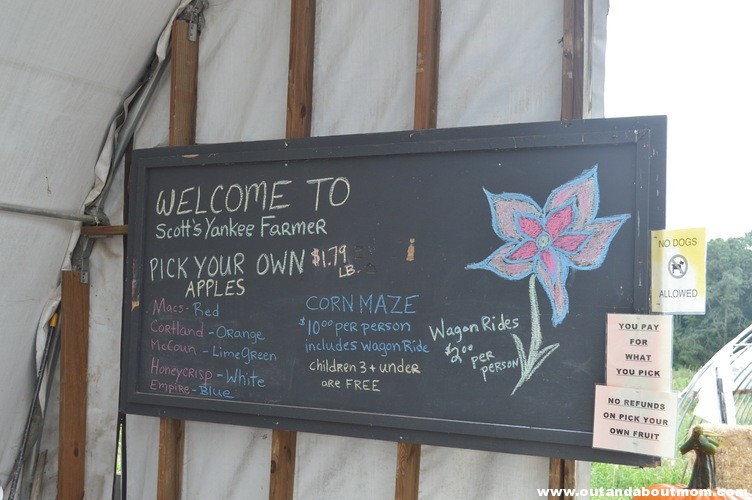 WELCOME TO
Scott's Yankee Farmer
PICK YOUR OWN $1.79
LB.
APPLES
Macs - Red
Cortland - Orange
McCoun - Lime Green
Honeycrisp - White
Empire - Blue
CORN MAZE
$10.00 per person
includes Wagon Ride
children 3 + under
are FREE
Wagon Rides
$2.00 per
person
NO DOGS
ALLOWED
YOU PAY
FOR
WHAT
YOU PICK
NO REFUNDS
ON PICK YOUR
OWN FRUIT
www.outandaboutmom.com